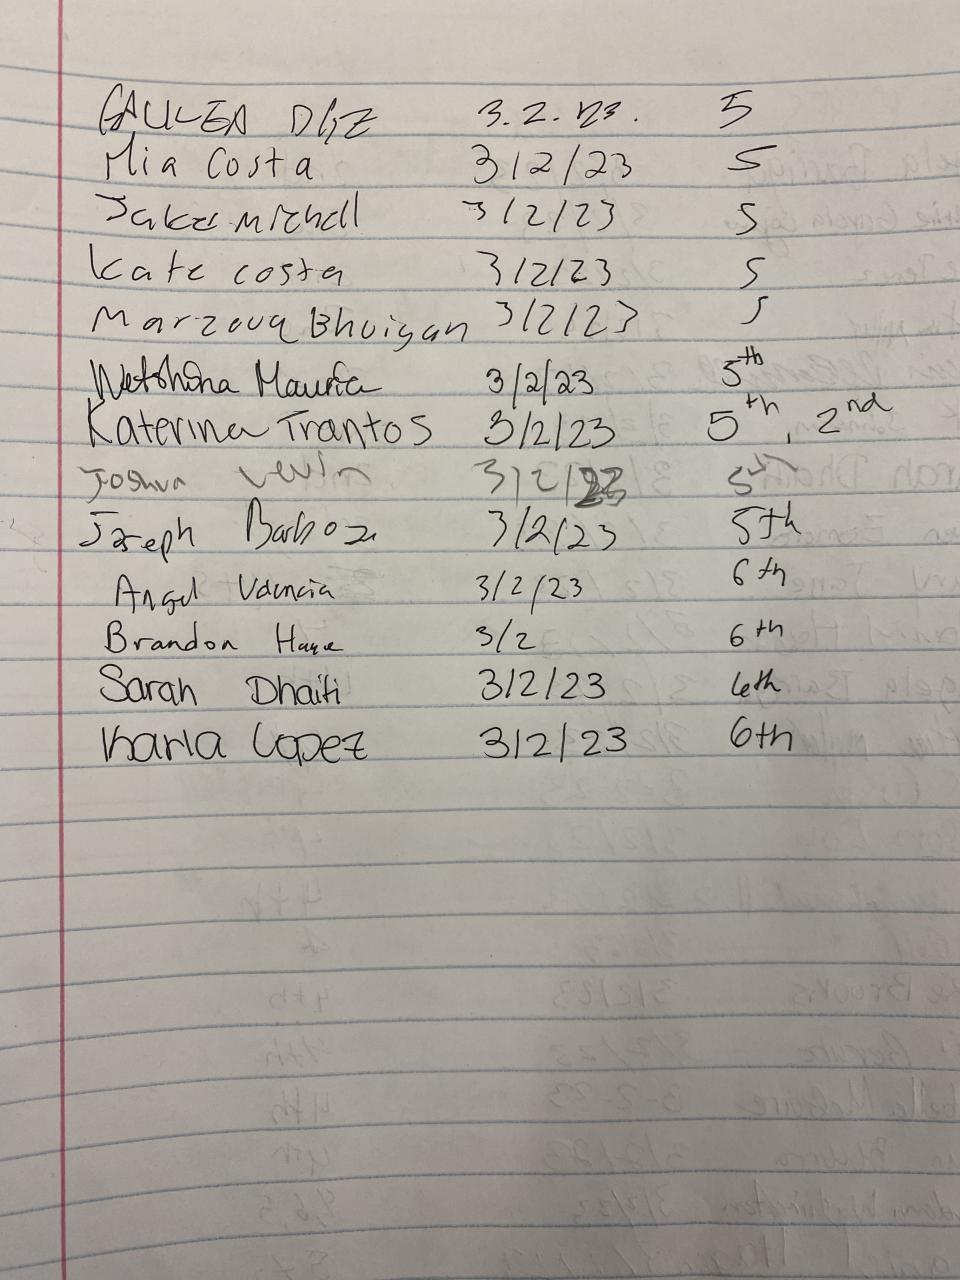 DIAZ 3.2.23. 5
Mia Costa 3/2/23 5
Jake Michell 3/2/23 5
Kate costa 3/2/23 5
Marzouq Bhuiyan 3/2/23 5
3/2/23 5th
Katerina Trantos 3/2/23 5th, 2nd
Joshua Levin 3/2/23
Joseph Barboza 3/2/23 5th
Angel Valencia 3/2/23 6th
Brandon 3/2 6th
Sarah Dhaiti 3/2/23 6th
Karla Lopez 3/2/23 6th